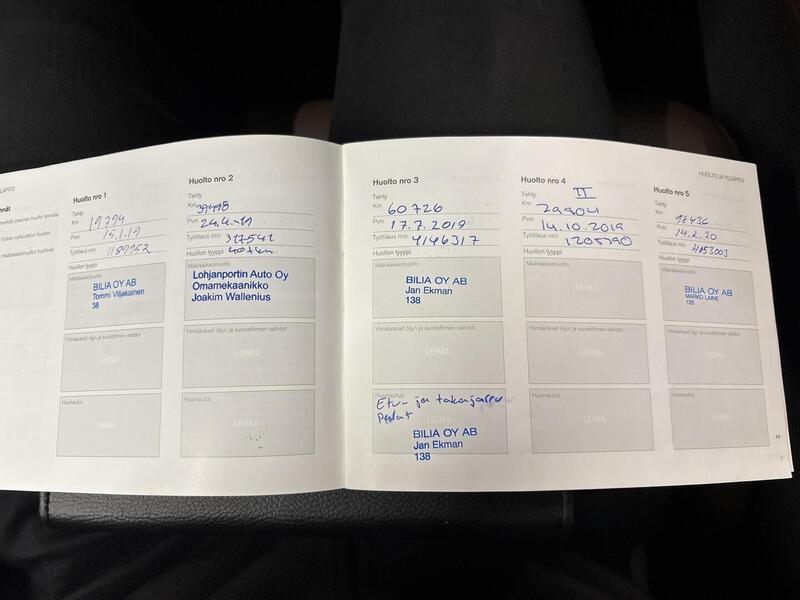 Huolto nro 1
Tehty
Km 19794
Pvm 15.1.19
Työtilaus nro:
Huollon tyyppi
Määräaikaishuolto
BILIA OY AB
Tommi Viljakainen
38
Ylimääräiset öljyn ja suodattimen vaihdot
LEIMA
Huomautus
LEIMA
Huolto nro 2
Tehty
Km
Pvm
Työtilaus nro: 317541
Huollon tyyppi
Määräaikaishuolto
Lohjanportin Auto Oy
Omamekaanikko
Joakim Wallenius
Ylimääräiset öljyn ja suodattimen vaihdot
LEIMA
Huomautus
LEIMA
Huolto nro 3
Tehty
Km 60726
Pvm 17.7.2019
Työtilaus nro: 4146317
Huollon tyyppi
Määräaikaishuolto
BILIA OY AB
Jan Ekman
138
Ylimääräiset öljyn ja suodattimen vaihdot
LEIMA
Huomautus
Etu- ja takajarru
Palat
BILIA OY AB
Jan Ekman
138
Huolto nro 4
Tehty II
Km
Pvm 14.10.2019
Työtilaus nro: 1205790
Huollon tyyppi
Määräaikaishuolto
LEIMA
Ylimääräiset öljyn ja suodattimen vaihdot
LEIMA
Huomautus
LEIMA
HUOLTO JA YLLÄPITO
Huolto nro 5
Tehty
Km 98436
Pvm 14.2.20
Työtilaus nro: 4153003
Huollon tyyppi
Määräaikaishuolto
BILIA OY AB
MARKO LAINE
125
Ylimääräiset öljyn ja suodattimen vaihdot
LEIMA
Huomautus
LEIMA